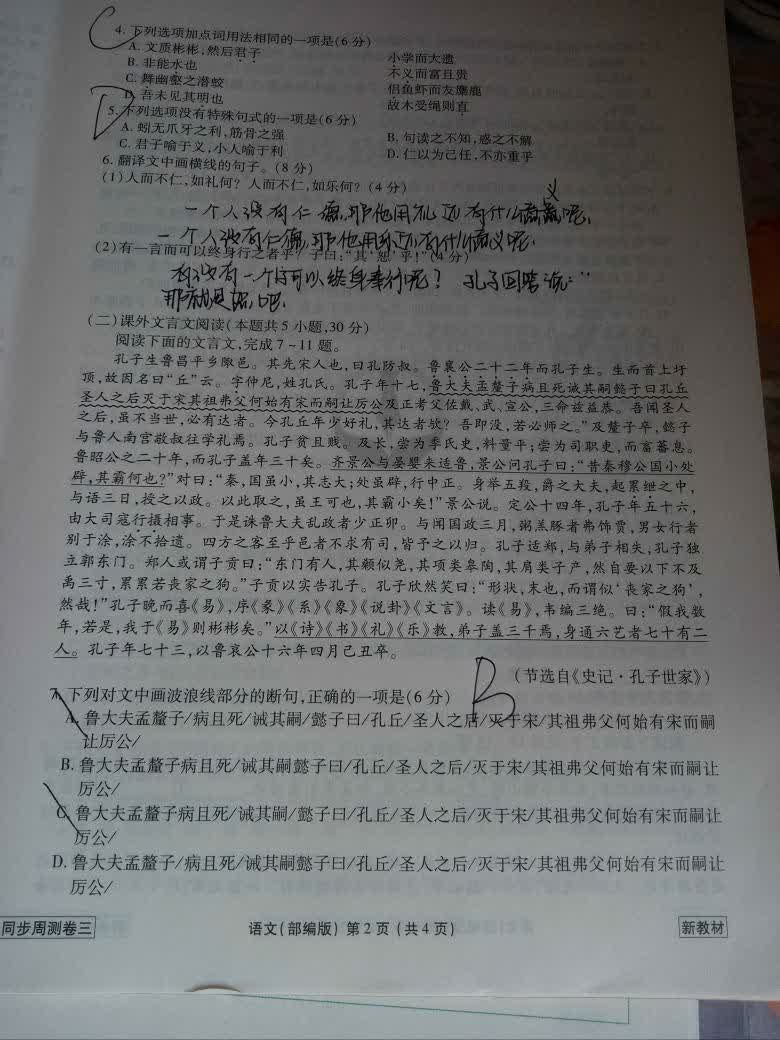 C
4. 下列选项加点词用法相同的一项是(6分)
A. 文质彬彬,然后君子 小学而大遗
B. 非能水也 不义而富且贵
C. 舞幽壑之潜蛟 侣鱼虾而友麋鹿
D. 吾未见其明也 故木受绳则直
D
5. 下列选项没有特殊句式的一项是(6分)
A. 蚓无爪牙之利,筋骨之强 B. 句读之不知,惑之不解
C. 君子喻于义,小人喻于利 D. 仁以为己任,不亦重乎
6. 翻译文中画横线的句子。(8分)
(1)人而不仁,如礼何？人而不仁,如乐何？(4分)
义
一个人没有仁德,那他用礼还有什么意义呢,
一个人没有仁德,那他用乐还有什么意义呢.
(2)有一言而可以终身行之者乎？子曰:“其‘恕’乎！”(4分)
有没有一个字可以终身奉行呢？孔子回答说:“
那就是恕吧.
(二)课外文言文阅读(本题共5小题,30分)
阅读下面的文言文,完成7~11题。
孔子生鲁昌平乡陬邑。其先宋人也,曰孔防叔。鲁襄公二十二年而孔子生。生而首上圩
顶,故因名曰“丘”云。字仲尼,姓孔氏。孔子年十七,鲁大夫孟釐子病且死诫其嗣懿子曰孔丘
圣人之后灭于宋其祖弗父何始有宋而嗣让厉公及正考父佐戴、武、宣公,三命兹益恭。吾闻圣人
之后,虽不当世,必有达者。今孔丘年少好礼,其达者欤？吾即没,若必师之。”及釐子卒,懿子
与鲁人南宫敬叔往学礼焉。孔子贫且贱。及长,尝为季氏史,料量平;尝为司职吏,而畜蕃息。
鲁昭公之二十年,而孔子盖年三十矣。齐景公与晏婴来适鲁,景公问孔子曰:“昔秦穆公国小处
辟,其霸何也?”对曰:“秦,国虽小,其志大;处虽辟,行中正。身举五羖,爵之大夫,起累绁之中,
与语三日,授之以政。以此取之,虽王可也,其霸小矣!”景公说。定公十四年,孔子年五十六,
由大司寇行摄相事。于是诛鲁大夫乱政者少正卯。与闻国政三月,粥羔豚者弗饰贾,男女行者
别于涂,涂不拾遗。四方之客至乎邑者不求有司,皆予之以归。孔子适郑,与弟子相失,孔子独
立郭东门。郑人或谓子贡曰:“东门有人,其颡似尧,其项类皋陶,其肩类子产,然自要以下不及
禹三寸,累累若丧家之狗。”子贡以实告孔子。孔子欣然笑曰:“形状,末也,而谓似‘丧家之狗’,
然哉!”孔子晚而喜《易》,序《彖》《系》《象》《说卦》《文言》。读《易》,韦编三绝。曰:“假我数
年,若是,我于《易》则彬彬矣。”以《诗》《书》《礼》《乐》教,弟子盖三千焉,身通六艺者七十有二
人。孔子年七十三,以鲁哀公十六年四月己丑卒。
(节选自《史记·孔子世家》)
B
7. 下列对文中画波浪线部分的断句,正确的一项是(6分)
A. 鲁大夫孟釐子/病且死/诫其嗣/懿子曰/孔丘/圣人之后/灭于宋/其祖弗父何始有宋而嗣
让厉公/
B. 鲁大夫孟釐子病且死/诫其嗣懿子曰/孔丘/圣人之后/灭于宋/其祖弗父何始有宋而嗣让
厉公/
C. 鲁大夫孟釐子病且死/诫其嗣/懿子曰/孔丘/圣人之后/灭于宋/其祖弗父何始有宋而嗣让
厉公/
D. 鲁大夫孟釐子/病且死/诫其嗣懿子曰/孔丘/圣人之后/灭于宋/其祖弗父何始有宋而嗣让
厉公/
同步周测卷三 语文(部编版) 第2页 (共4页) 新教材